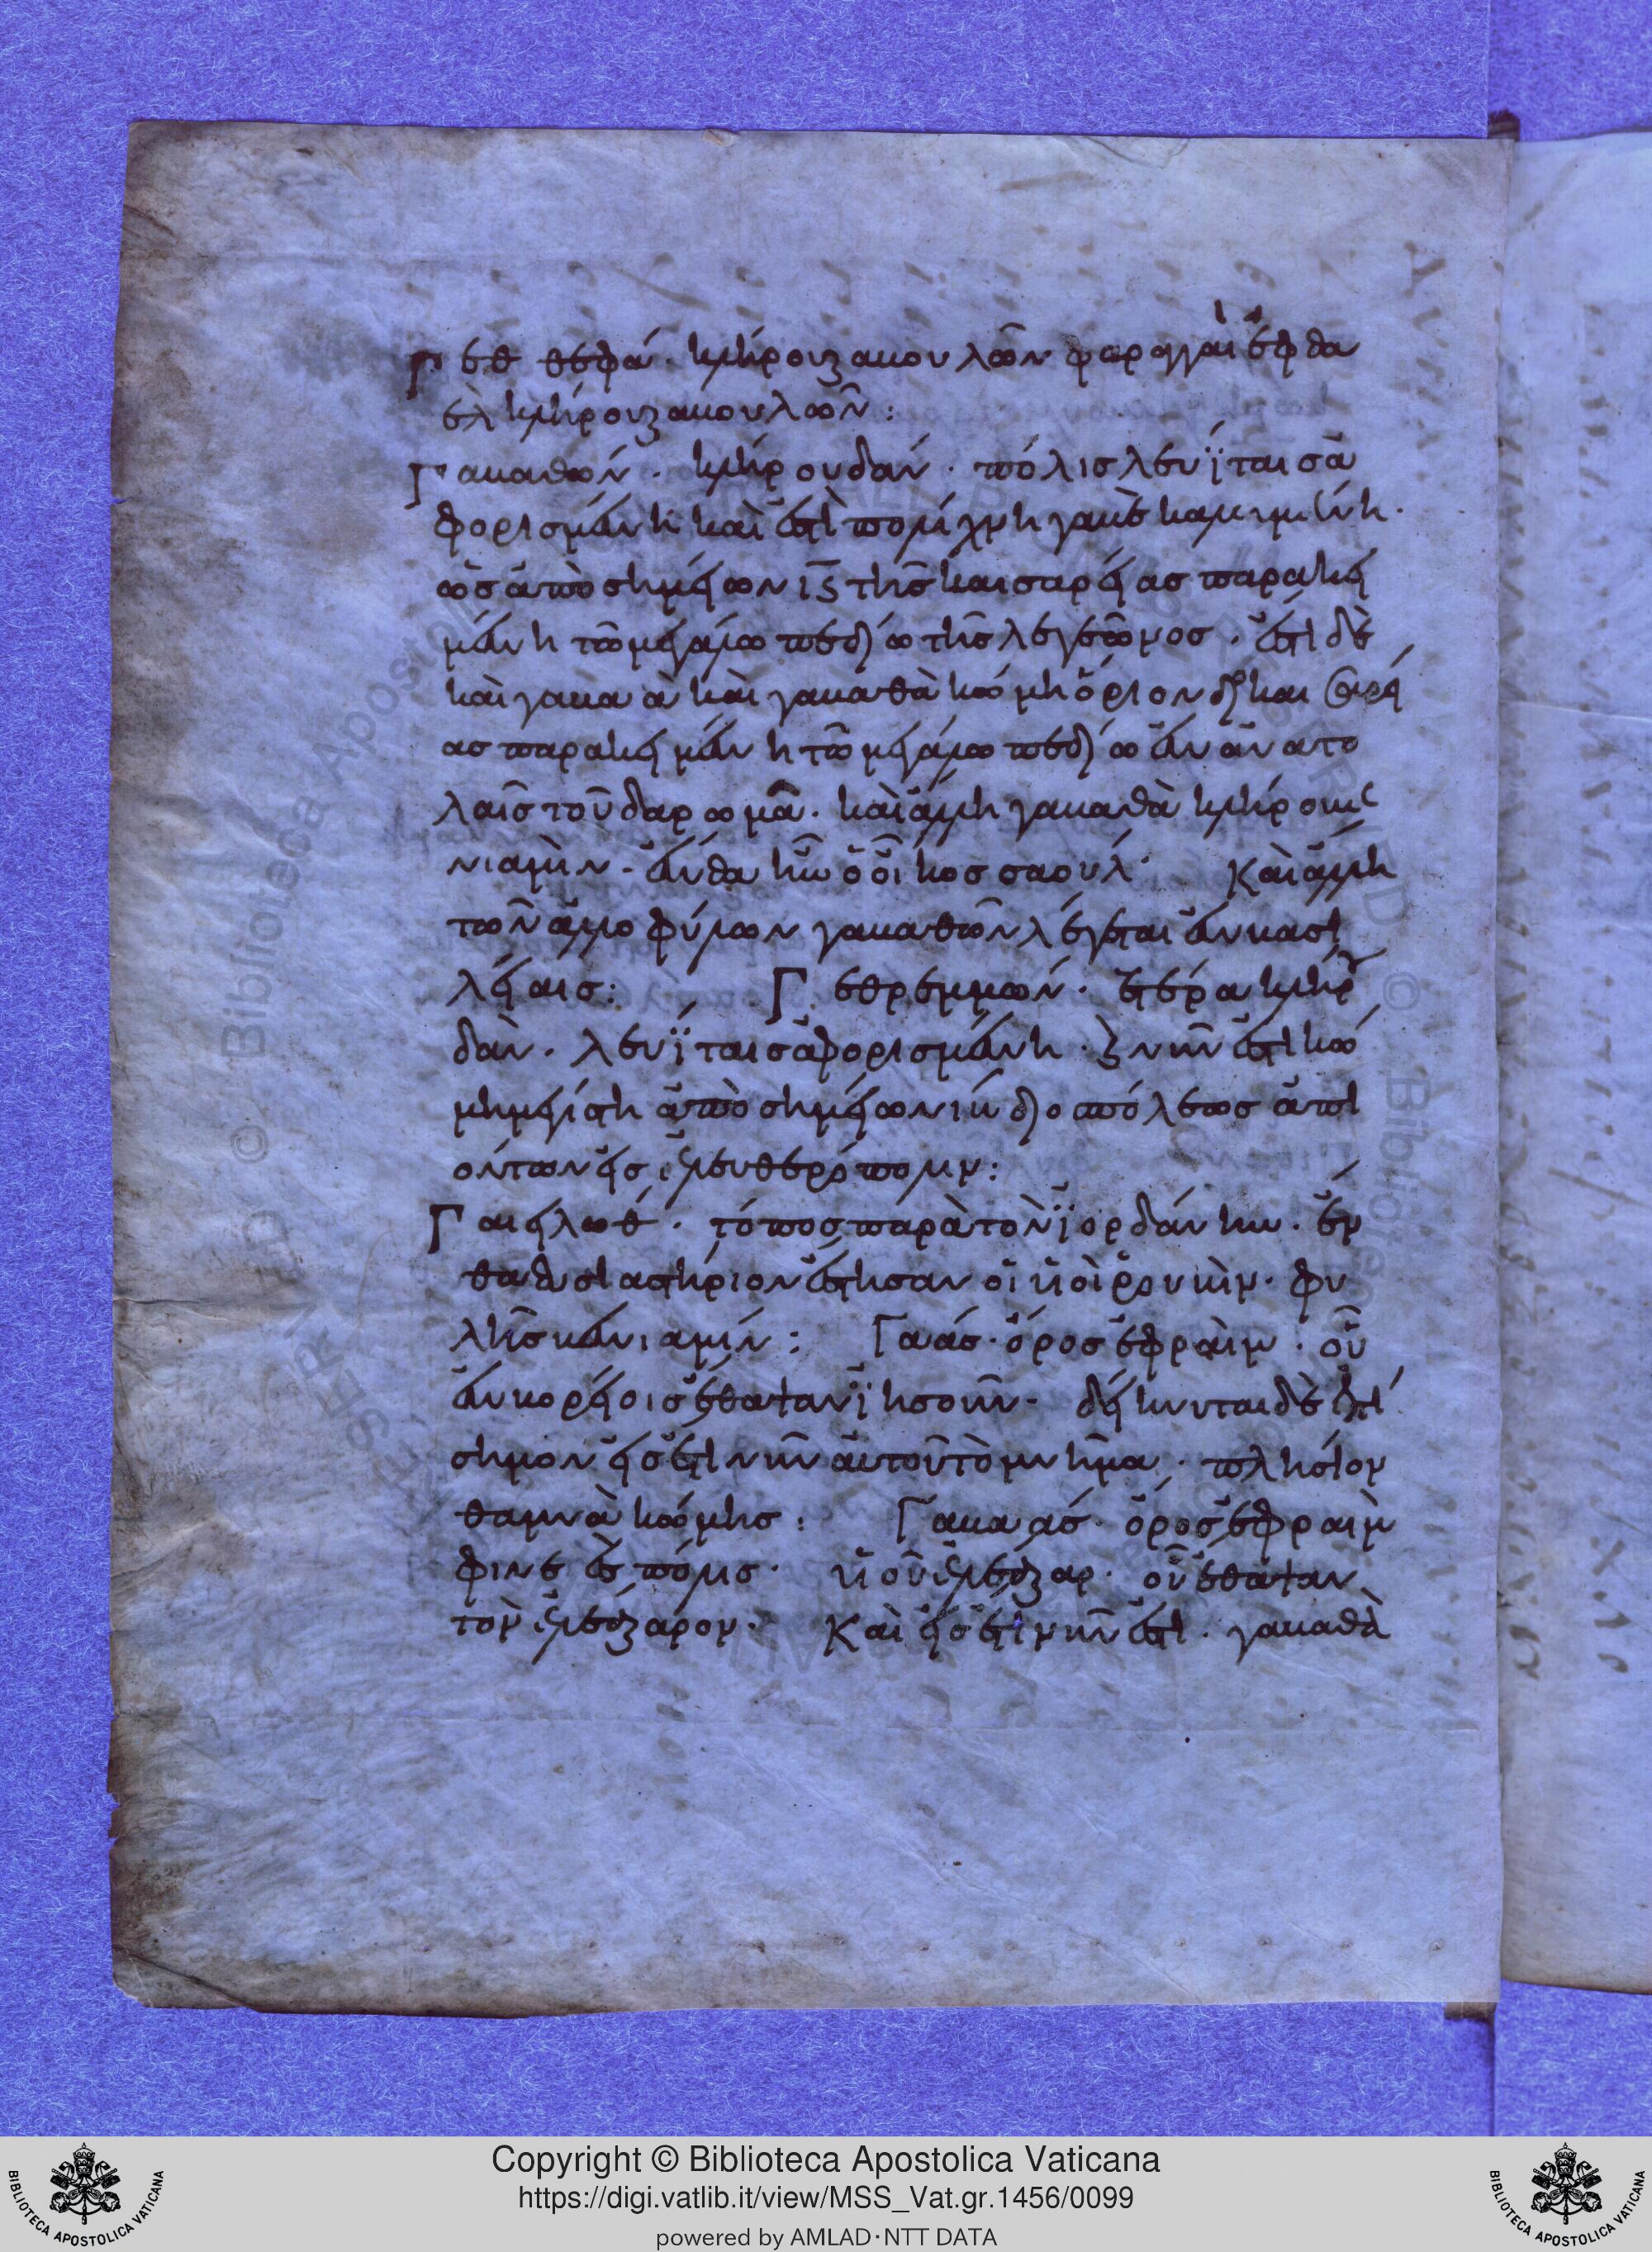 Γεθθεφά. κλήρου ζαβουλῶν φάραγγαι ἐφθα
ὲλ κλήρου ζαβουλῶν:
Γαβαθών. κλήρου δάν. πόλις λευΐταις ἀ
φορισμένη καὶ ἔστι πολίχνη γαβὲ καλουμένη.
ὡς ἀπὸ σημείων ιϛ τῆς καισαρείας παρακει
μένη τῶ μεγάλω πεδίω τῆς λεγεῶνος. ἔστι δὲ
καὶ γαβαὰ καὶ γαβαθὰ κώμη ὅριον δϊοκαισαρεί
ας παρακειμένη τῶ μεγάλω πεδίω ἐν ἀνατο
λαῖς τοῦ δαρωμᾶ. καὶ ἄλλη γαβαθὰ κλήρου βε
νιαμὶν. ἔνθα ἦν ὁ οἶκος σαουλ. Καὶ ἄλλη
τῶν ἀλλοφύλων γαβαθῶν λέγεται ἐν βασι
λείαις: Γεθρεμμών. ἑτέρα κλήρου
δὰν. λευΐταις ἀφορισμένη. ξ νῦν ἐστὶ κώ
μη μεγίστη ἀπὸ σημείων ιβ διοπόλεως ἀπι
όντων εἰς ἐλευθερόπολιν:
Γαιειλωθ. τόπος παρὰ τὸν ϊορδάνην. ἔν
θα θυσιαστήριον ἔστησαν οἱ υἱοὶ ρουβὶν. φυ
λῆς βενιαμίν: Γαάς. ὄρος ἐφραὶμ. οὗ
ἐν βορείοις ἔθαψαν ϊησοῦν. δείκνυται δὲ ἐπί
σημον εἰσέτι νῦν αὐτοῦ τὸ μνῆμα. πλησίον
θαμνὰ κώμης: Γαβαάς. ὄρος ἐφραὶμ
φινεὲς πόλις. υἱοῦ ἐλεάζαρ. οὗ ἔθαψαν
τὸν ἐλεάζαρον. Καὶ εἰσέτι νῦν ἐστὶ. γαβαθὰ
© Biblioteca Apostolica Vaticana
Copyright © Biblioteca Apostolica Vaticana
https://digi.vatlib.it/view/MSS_Vat.gr.1456/0099
powered by AMLAD·NTT DATA
BIBLIOTECA APOSTOLICA VATICANA
BIBLIOTECA APOSTOLICA VATICANA